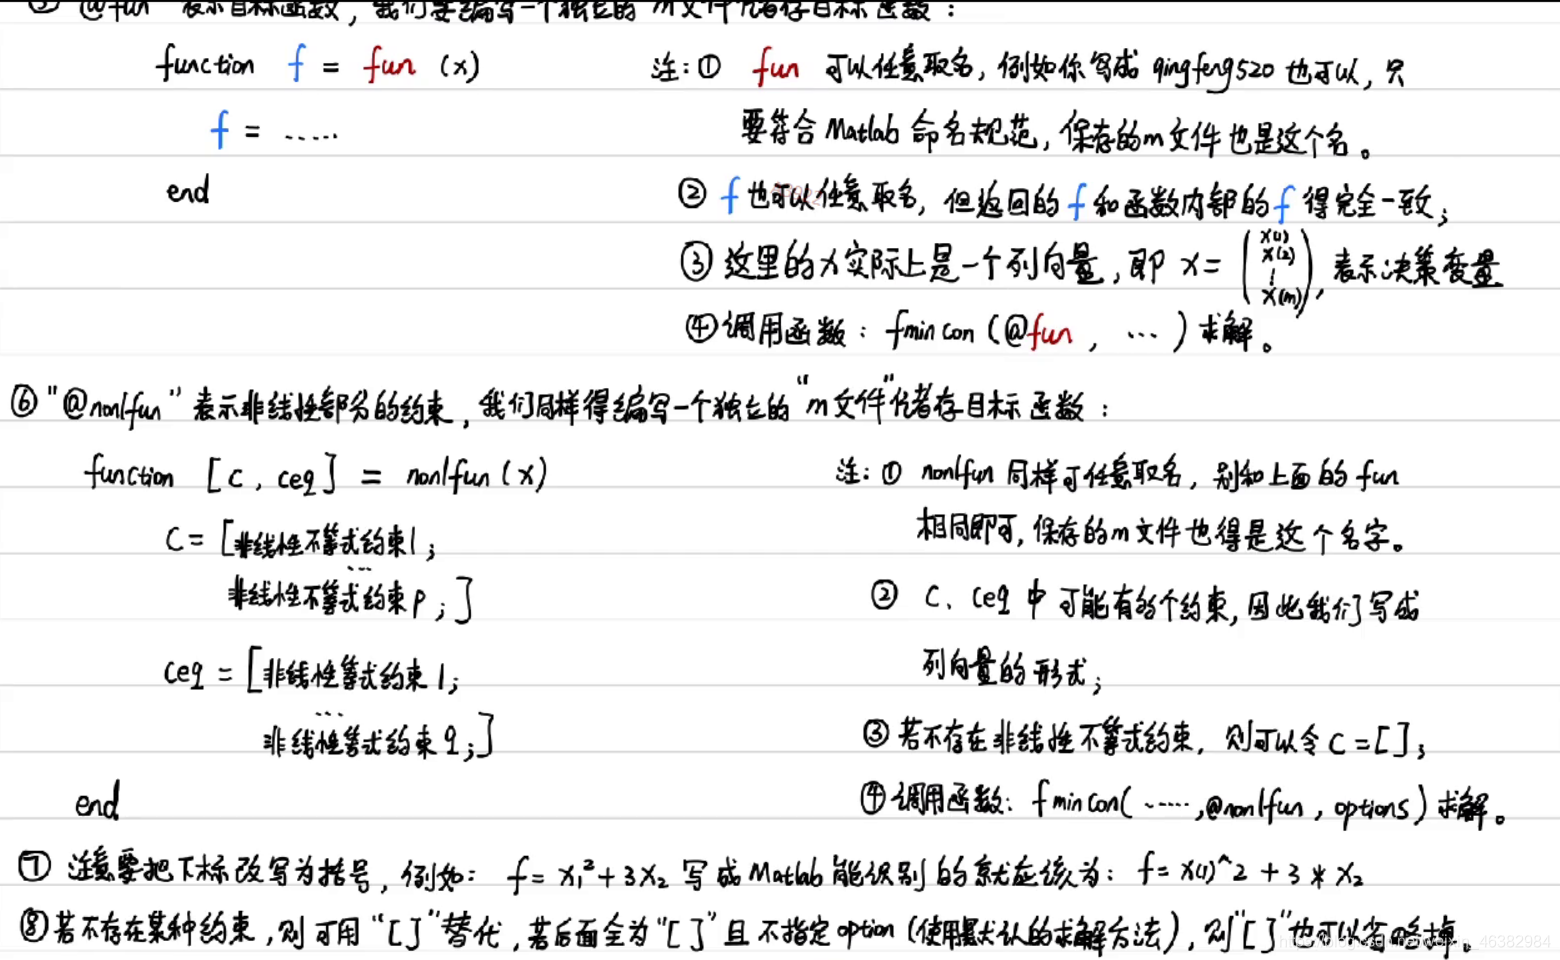 ⑤ @fun 表示目标函数，我们要编写一个独立的 m文件储存目标函数：
function f = fun (x)
f = ......
end
注：① fun 可以任意取名，例如你写成 qingfeng520 也可以，只
要符合 Matlab 命名规范，保存的m文件也是这个名。
② f 也可以任意取名，但返回的 f 和函数内部的 f 得完全一致；
③ 这里的x实际上是一个列向量，即 x = (x(1) x(2) ⋮ x(m))，表示决策变量
④ 调用函数：fmincon (@fun , ... ) 求解。
⑥ "@nonlfun" 表示非线性部分的约束，我们同样得编写一个独立的"m文件"储存目标函数：
function [c , ceq] = nonlfun (x)
C = [非线性不等式约束1；
...
非线性不等式约束p；]
ceq = [非线性等式约束1；
...
非线性等式约束q；]
end
注：① nonlfun 同样可任意取名，别和上面的 fun
相同即可，保存的m文件也得是这个名字。
② C、Ceq 中可能有多个约束，因此我们写成
列向量的形式；
③ 若不存在非线性不等式约束，则可以令 C = [ ]；
④ 调用函数：fmincon( ......,@nonlfun , options) 求解。
⑦ 注意要把下标改写为括号，例如： f = x₁² + 3x₂ 写成 Matlab 能识别的就应该为：f = x(1)^2 + 3 * x₂
⑧ 若不存在某种约束，则可用 "[ ]" 替代，若后面全为 "[ ]" 且不指定 option (使用默认的求解方法)，则"[ ]"也可以省略掉。